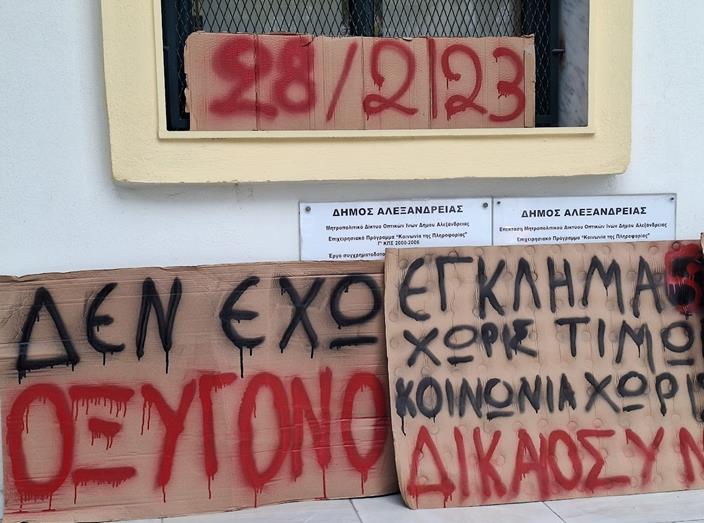 28/2/23
ΔΗΜΟΣ ΑΛΕΞΑΝΔΡΕΙΑΣ
Μητροπολιτικό Δικτυο Οπτικών Ινων Δήμου Αλεξάνδρειας
Επιχειρησιακό Πρόγραμμα "Κοινωνία της Πληροφορίας"
Γ' ΚΠΣ 2000-2006
Έργο συγχρηματοδοτο
ΔΗΜΟΣ ΑΛΕΞΑΝΔΡΕΙΑΣ
Επέκταση Μητροπολιτικού Δικτύου Οπτικών Ινων Δήμου Αλεξάνδρειας
Επιχειρησιακό Πρόγραμμα "Κοινωνία της Πληροφορίας"
ΔΕΝ ΕΧΩ
ΟΞΥΓΟΝΟ
ΕΓΚΛΗΜΑ
ΧΩΡΙΣ ΤΙΜΩ
ΚΟΙΝΩΝΙΑ ΧΩΡΙΣ
ΔΙΚΑΙΟΣΥΝ